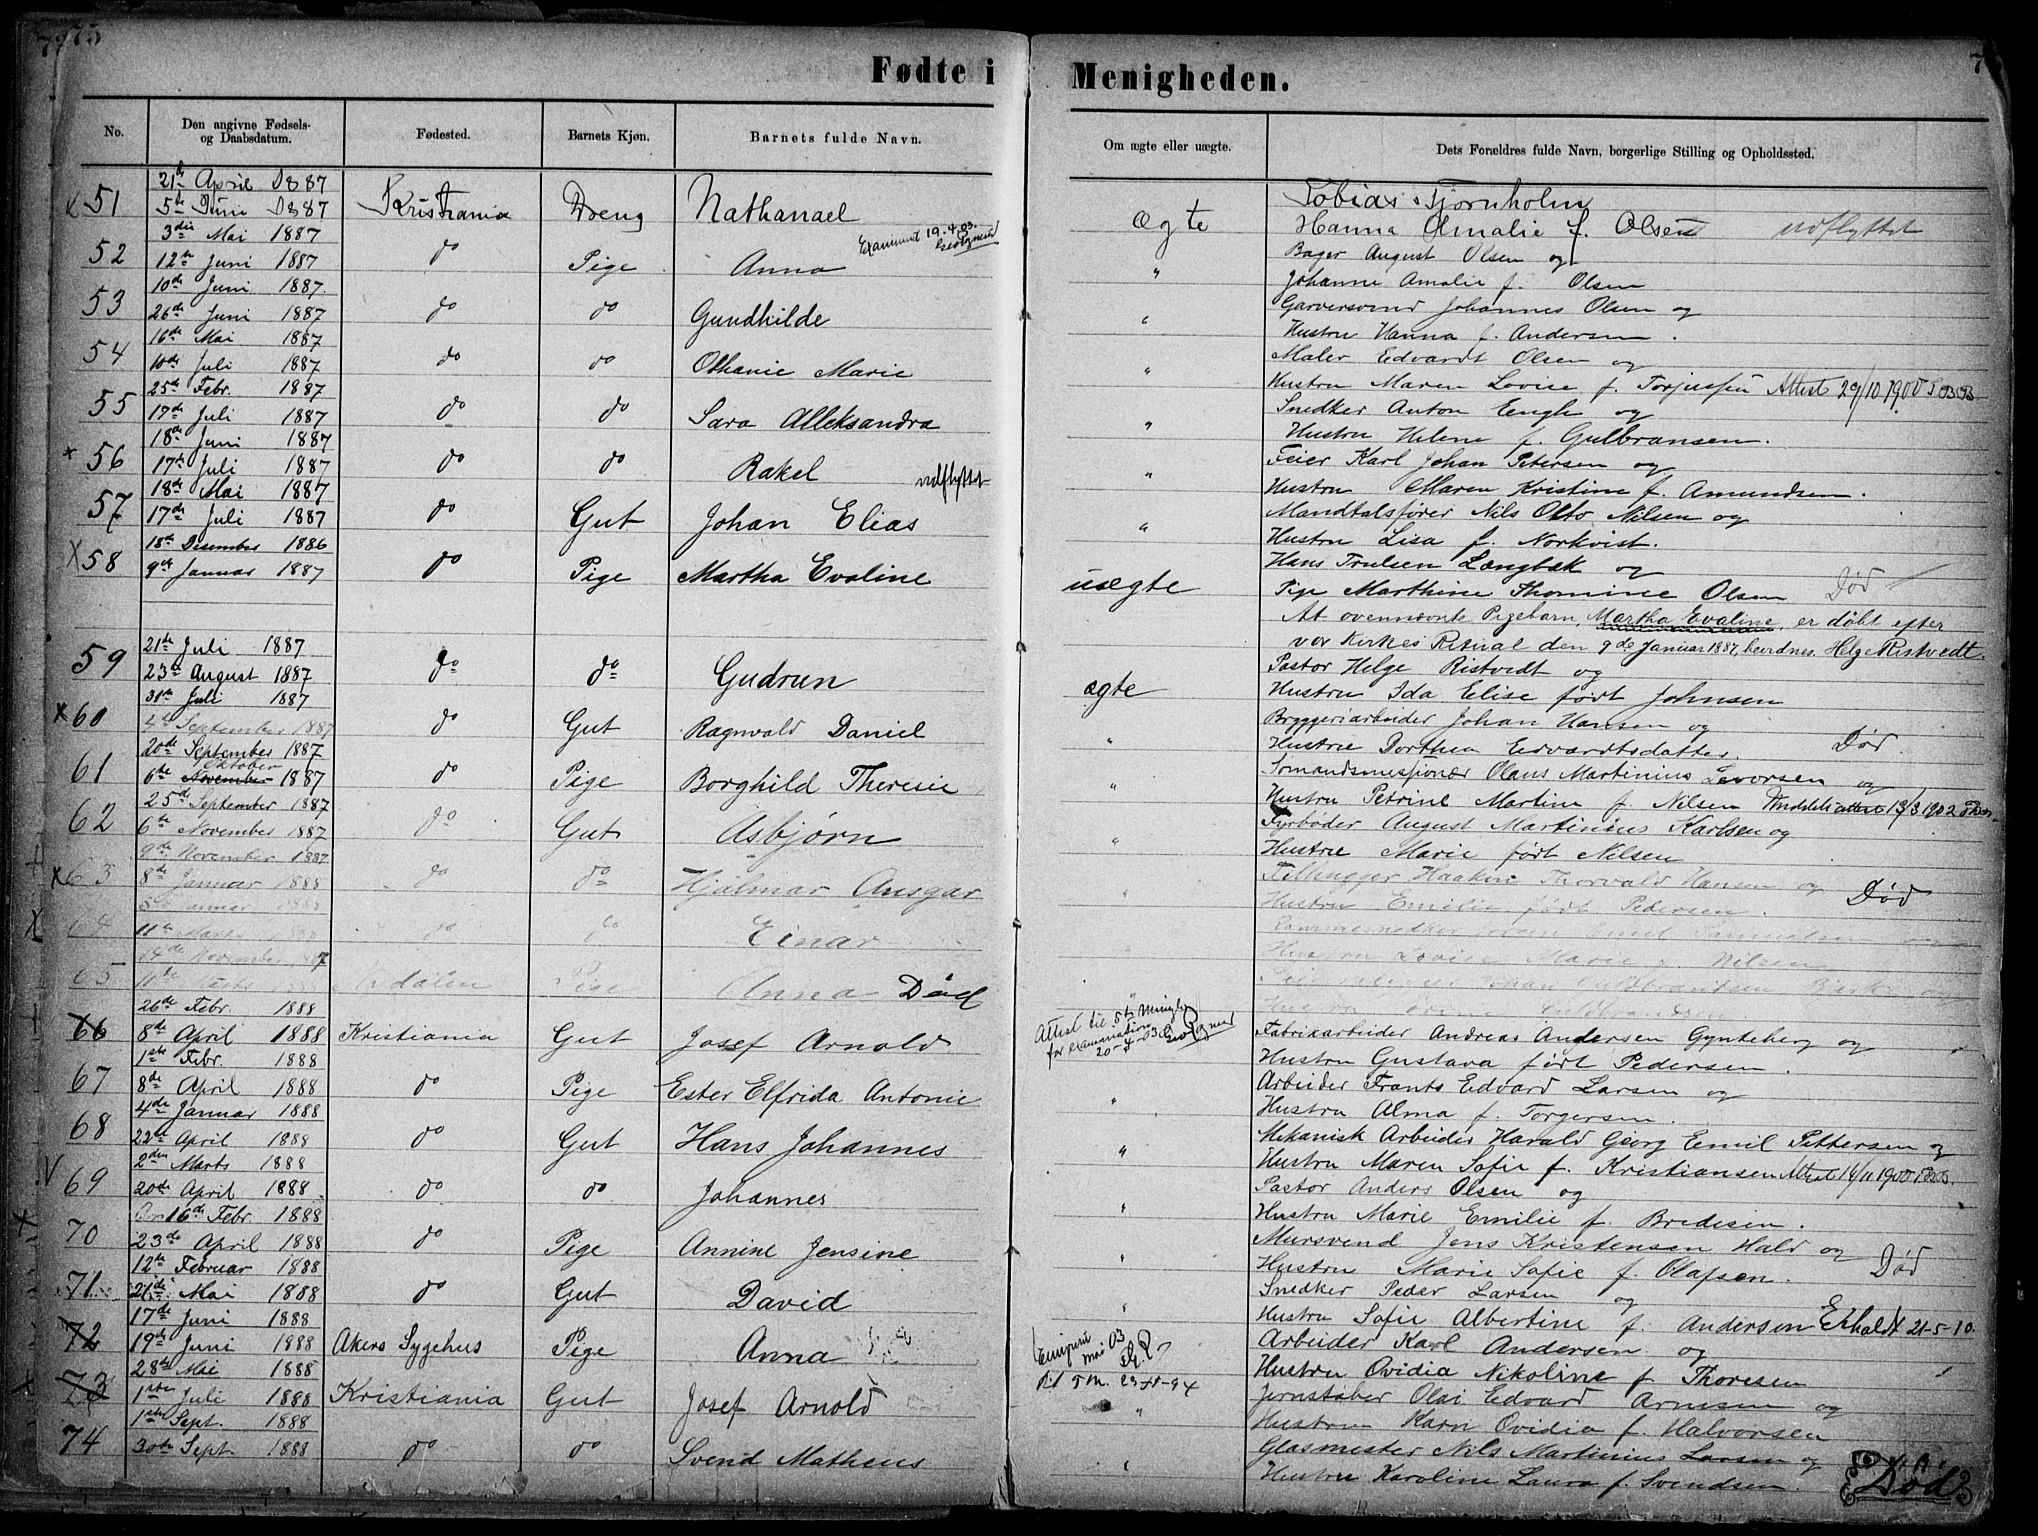 75
Fødte i Menigheden.
No. Den angivne Fødsels- og Daabsdatum. Fødested. Barnets Kjøn. Barnets fulde Navn. Om ægte eller uægte. Dets Forældres fulde Navn, borgerlige Stilling og Opholdssted.
21de April 1887 Tobias Tjørnholm
51 5te Juni 1887 Kristiania Dreng Nathanael Ægte Hanna Amalie f. Olsen udflyttet
3die Mai 1887 Examinert 19.4.03. Bager August Olsen og
52 12te Juni 1887 do Pige Anna " Johanne Amalie f. Olsen
10de Juni 1887. Garversvend Johannes Olsen og
53 26de Juni 1887 do do Gundhilde " Hustru Hanna f. Andersen.
16de Mai 1887 Maler Edvardt Olsen og
54 10de Juli 1887 do do Othanie Marie " Hustru Maren Lovise f. Attest 29/10 1900
25de Febr. 1887 Snedker Anton Engh og
55 17de Juli 1887 do do Sara Alleksandra " Hustru Helene f. Gulbransen.
18de Juni 1887 Feier Karl Johan Petersen og
x 56 17de Juli 1887 do do Rakel udflyttet " Hustru Maren Kristine f. Amundsen.
18de Mai 1887 Mandtalsfører Nils Otto Nilsen og
57 17de Juli 1887 do Gut Johan Elias " Hustru Lisa f. Norkvist.
18de Desember 1886 Hans Trulsen Langbæk og
X 58 9de Januar 1887 do Pige Martha Evaline uægte Pige Marthine Thomine Olsen Død
At ovennævnte Pigebarn, Martha Evaline, er døbt efter
vor Kirkes Ritual den 9de Januar 1887, bevidnes. Helge Ristvedt.
21de Juli 1887 Pastor Helge Ristvedt og
59 23de August 1887 do do Gudrun ægte Hustru Ida Elise født Johnsen
31de Juli 1887 Bryggeriarbeider Johan Hansen og
x 60 4de September 1887 do Gut Ragnvald Daniel " Hustru Dorthea Edvardtsdatter. Død.
20de September 1887 Sømandsmissionær Olaus Martinius Levorsen og
61 6te November Oktober 1887 do Pige Borghild Theresie " Hustru Petrine Martine f. Nilsen 13/3 1902
25de September 1887 Fyrbøder August Martinius Karlsen og
62 6te November 1887 do Gut Asbjørn " Hustru Marie født Nilsen
9de November 1887 Haakon Thorvald Hansen og
x 63 8de Januar 1888 do do Hjalmar Ansgar " Hustru Emilie født Pedersen. Død
5te Januar 1888
X 64 11te Marts 1888 do do Einar " Hustru Lovise Marie f. Nilsen
14de November 1887
65 11te Marts 1888 Pige Anna Død " Hustru
26de Febr. 1888 Attest til 5te Menighed for examination 20-4-03 Fabrikarbeider Andreas Andersen Gynteberg og
66 8de April 1888 Kristiania Gut Josef Arnold Hustru Gustava født Pedersen.
1ste Febr. 1888 Arbeider Frants Edvard Larsen og
67 8de April 1888 do Pige Ester Elfrida Antonie " Hustru Alma f. Torgersen.
4de Januar 1888 Mekanisk Arbeider Harald Georg Emil Pettersen og
68 22de April 1888 do Gut Hans Johannes " Hustru Maren Sofie f. Kristiansen Attest 14/11 1900
2den Marts 1888 Pastor Anders Olsen og
V 69 20de April 1888 do do Johannes " Hustru Marie Emilie f. Bredesen.
16de Febr 1888 Mursvend Jens Kristensen Hald og
x 70 23de April 1888 do Pige Annine Jensine " Hustru Marie Sofie f. Olafsen. Død
12te Februar 1888 Snedker Peder Larsen og
71 21de Mai 1888 do Gut David " Hustru Sofie Albertine f. Andersen 21-5-10.
17de Juni 1888 Arbeider Karl Andersen og
72 19de Juni 1888 Akers Sygehus Pige Anna mai 03 Hustru Ovidia Nikoline f. Thoresen
28de Mai 1888 Jernstøber Olai Edvard Arnesen og
x 73 1ste Juli 1888 Kristiania Gut Josef Arnold " Hustru Karn Ovidia f. Halvorsen
1ste Sept. 1888 Glasmester Nils Martinius Larsen og
74 30te Sept. 1888 do do Svend Matheus " Hustru Karoline Laura f. Svendsen. Død